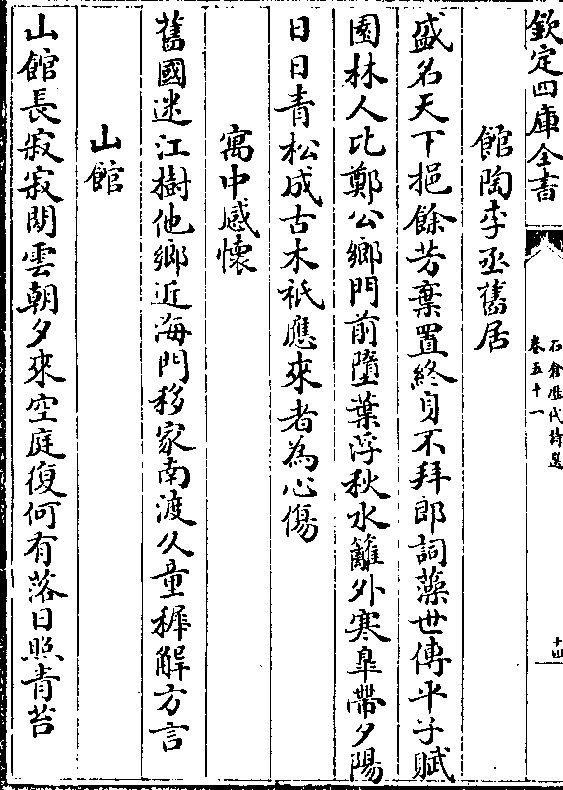 欽定四庫全書
石倉歷代詩選
卷五十一
十四
館陶李丞舊居
盛名天下挹餘芳棄置終身不拜郎詞藻世傳平子賦
園林人比鄭公鄉門前墮葉浮秋水籬外寒臯帶夕陽
日日青松成古木祇應來者為心傷
寓中感懷
舊國迷江樹他鄉近海門移家南渡久童穉解方言
山館
山館長寂寂閒雲朝夕來空庭復何有落日照青苔